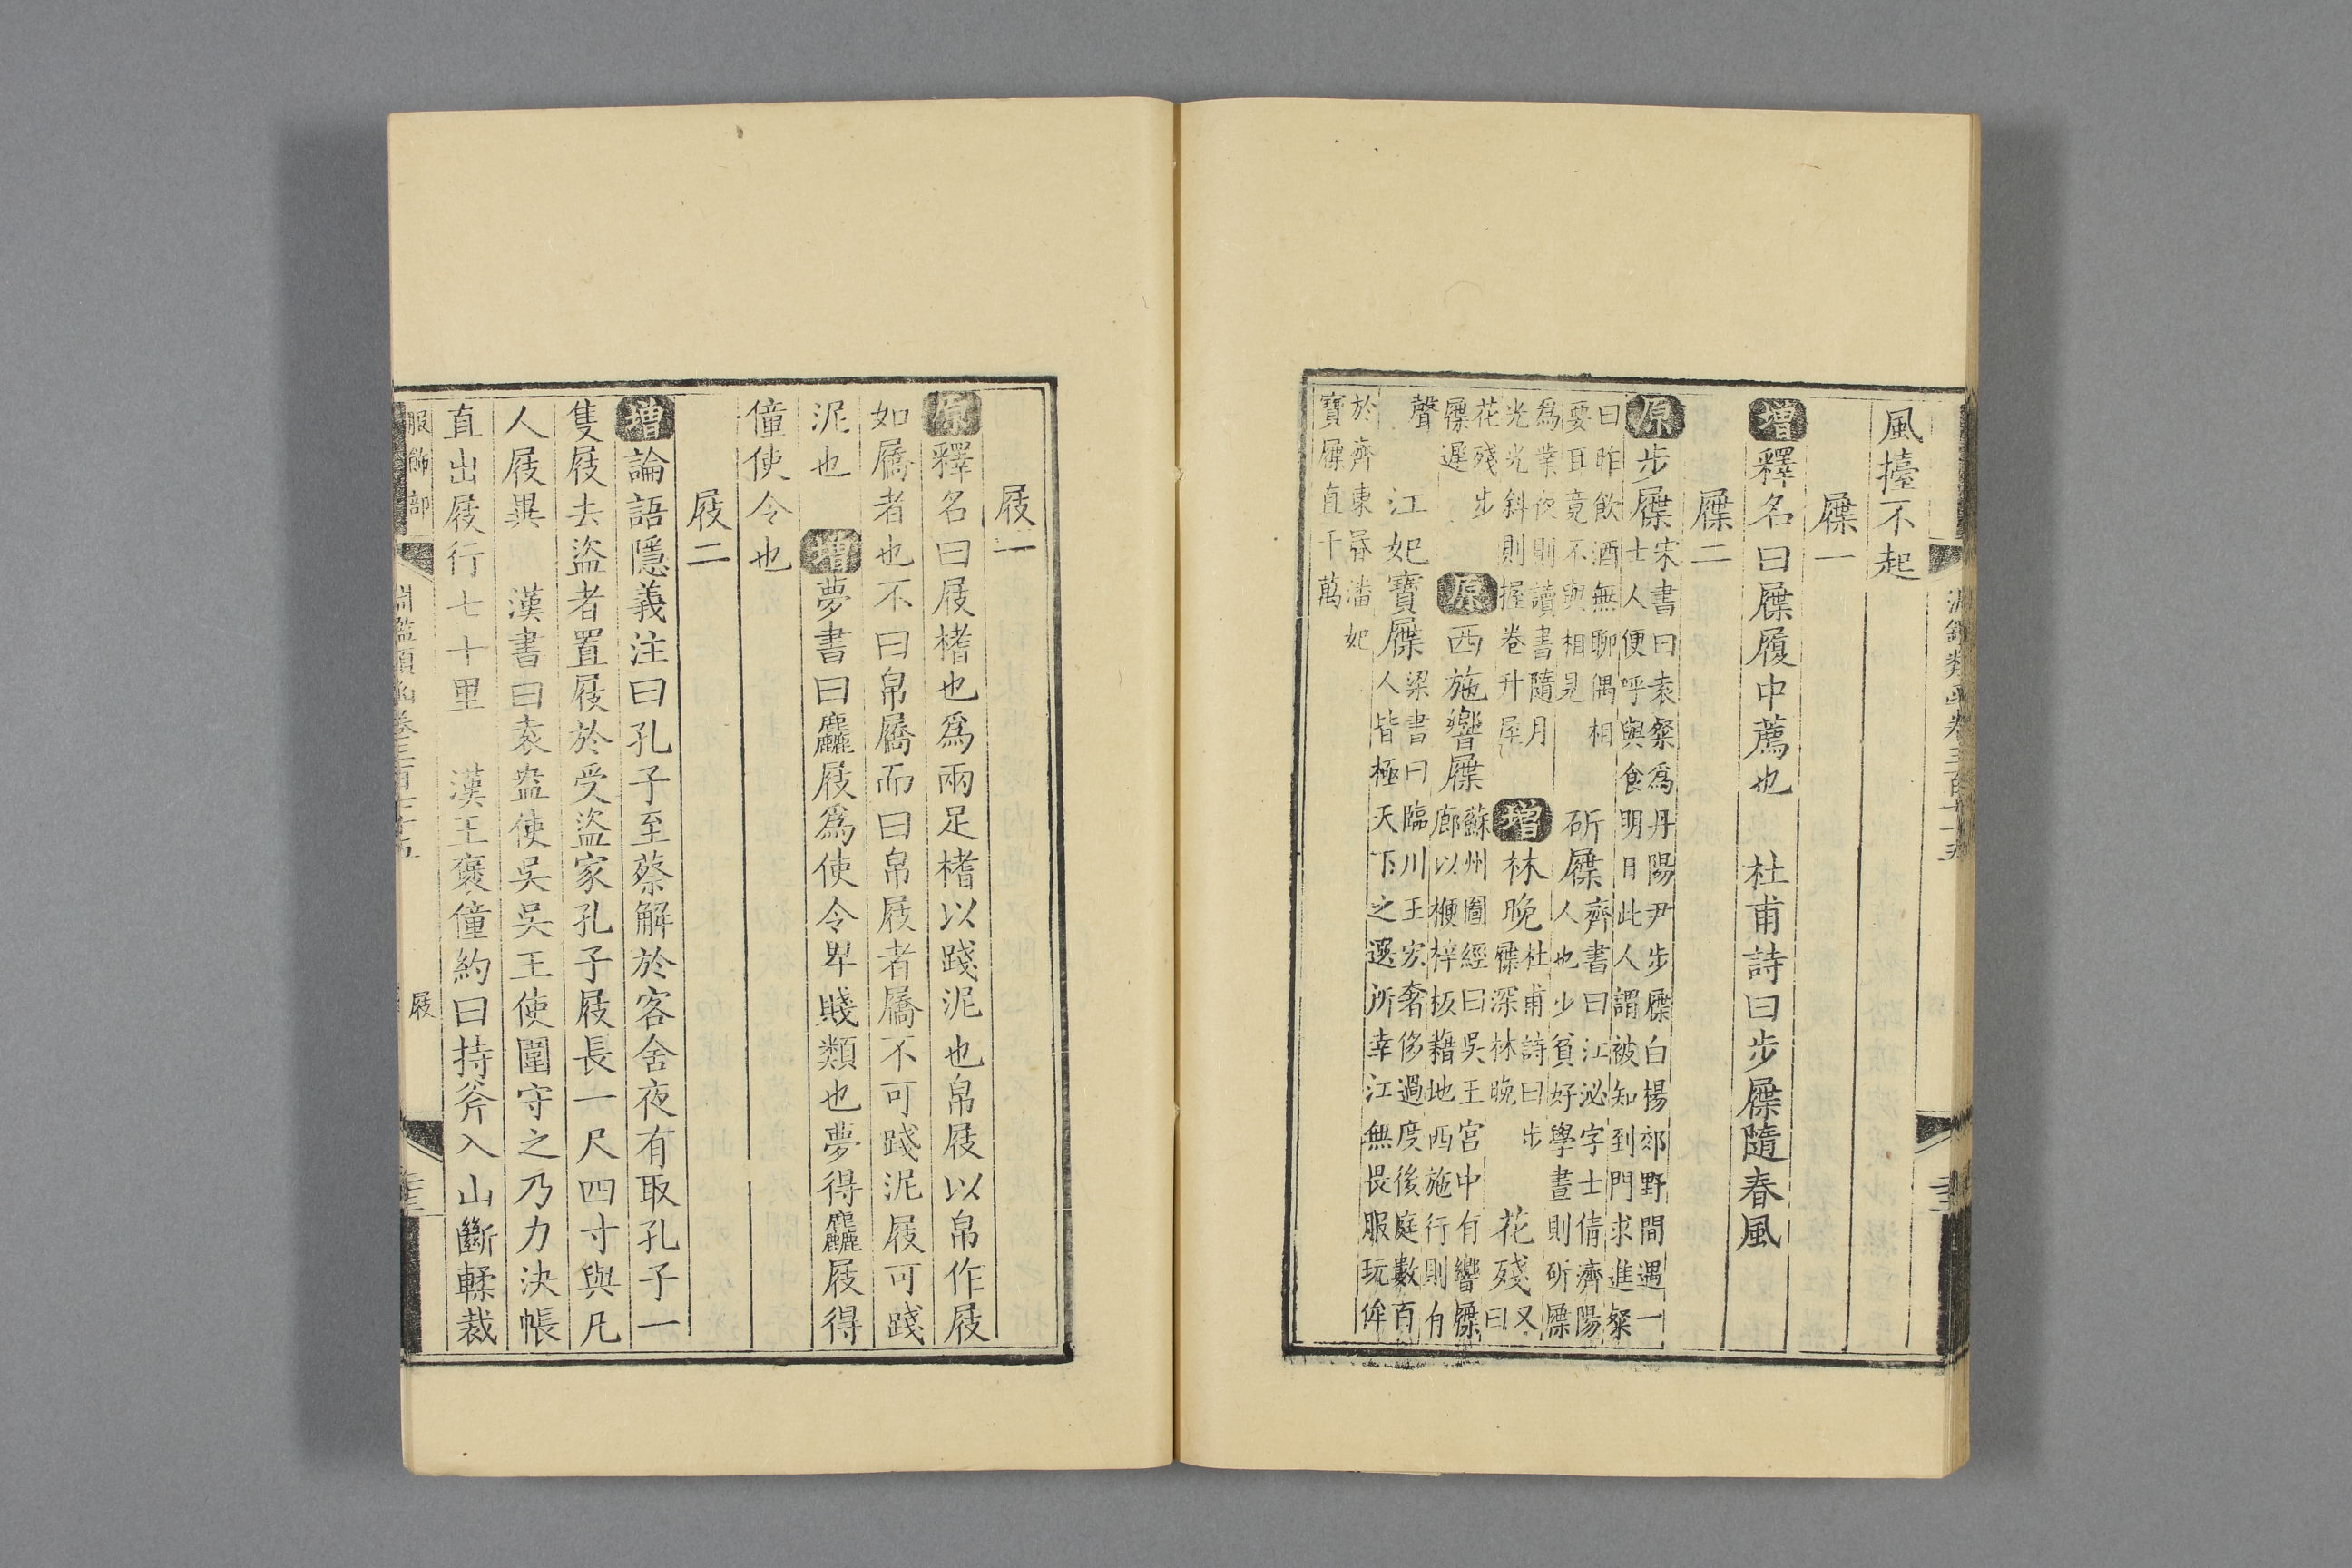 風擡不起
屧一
增釋名曰屧履中薦也　杜甫詩曰步屧隨春風
屧二
原步屧宋書曰袁粲爲丹陽尹步屧白楊郊野間遇一
士人便呼與食明日此人謂被知到門求進粲
曰昨飲酒無聊偶相
要耳竟不與相見
斫屧齊書曰江泌字士倩濟陽
人也少貧好學晝則斫屧
爲業夜則讀書隨月
光光斜則握卷升屋
增林晚杜甫詩曰步
屧深林晚
花殘又
曰
花殘步
屧遲
原西施響屧蘇州圖經曰吳王宮中有響屧
廊以楩梓板藉地西施行則有
聲
江妃寶屧梁書曰臨川王宏奢侈過度後庭數百
人皆極天下之選所幸江無畏服玩侔
於齊東昏潘妃
寶屧直千萬
屐一
原釋名曰屐榰也爲兩足榰以踐泥也帛屐以帛作屐
如屩者也不曰帛屩而曰帛屐者屩不可踐泥屐可踐
泥也　增夢書曰麤屐爲使令卑賤類也夢得麤屐得
僮使令也
屐二
增論語隱義注曰孔子至蔡解於客舍夜有取孔子一
隻屐去盜者置屐於受盜家孔子屐長一尺四寸與凡
人屐異　漢書曰袁盎使吳吳王使圍守之乃力決帳
直出屐行七十里　漢王褒僮約曰持斧入山斷輮裁
服飾部　淵鑑類函卷三百七十五　屐